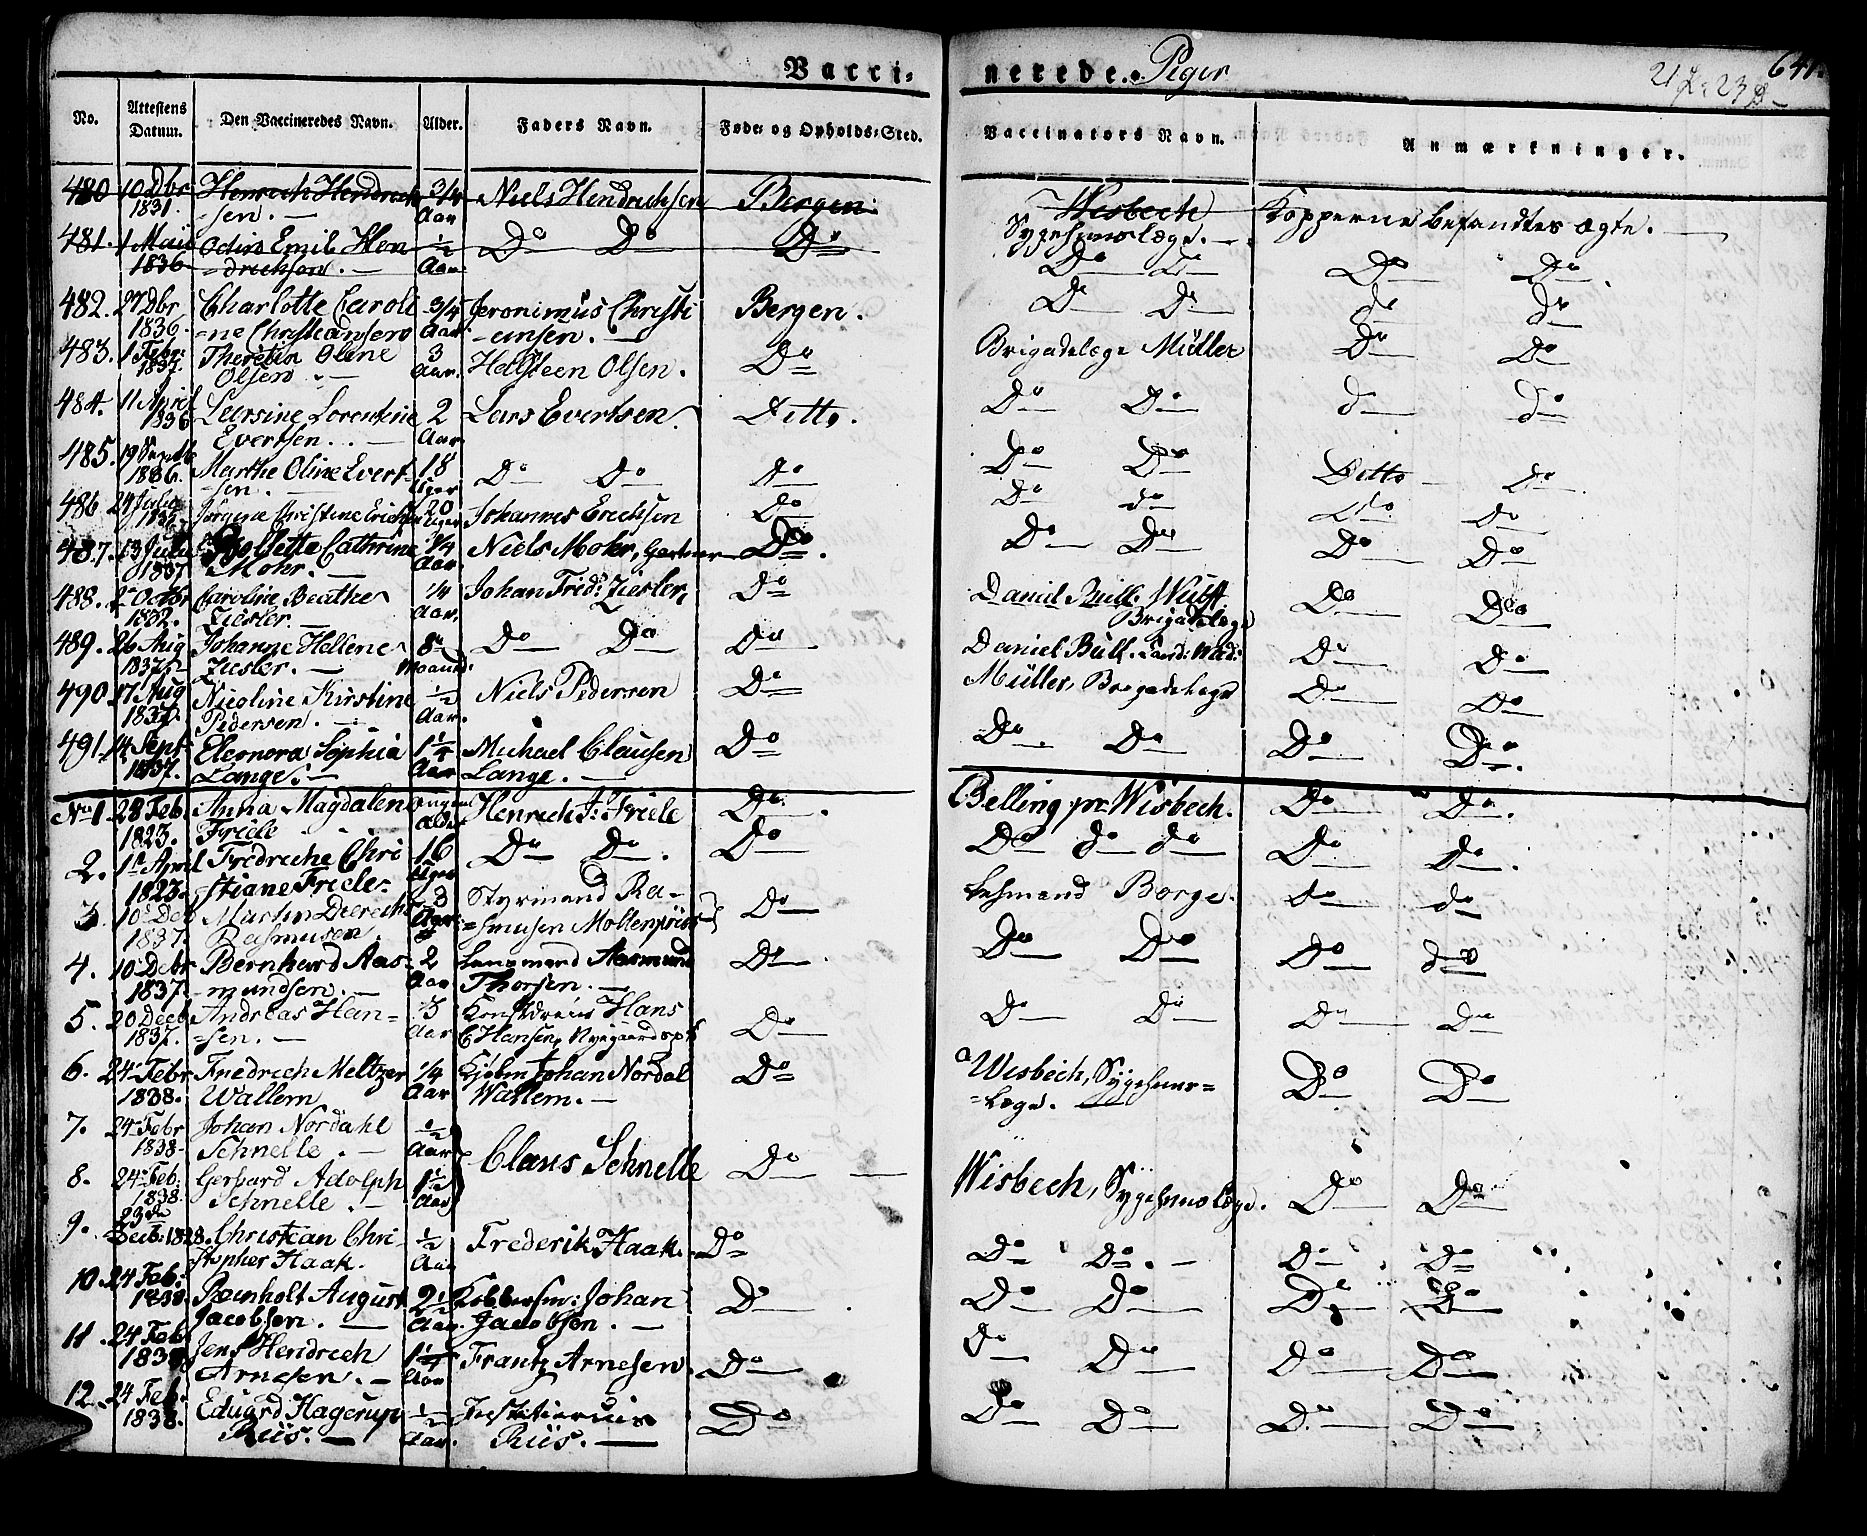 Vacci: nerede. Piger 641.
21 P: 23 D
No. Attestens Datum. Den Vaccineredes Navn. Alder. Faders Navn. Føde- og Opholds-Sted. Vaccinators Navn. Anmærkninger.
480 10 Dbr Henrich Hendrich 3/4 Niels Hendrichsen Bergen Wisbech Kopperne befandtes ægte.
1831. -sen. Aar Sygehuuslæge.
481. 1 Maii Odin Emil Hen ½ Do Do Do Do Do Do Do
1836 -drichsen. Aar
482. 27 Dbr Charlotte Caroli 3/4 Jeronimus Christi Bergen. Do Do do do
1836. -ne Christiansen Aar. -ansen.
483. 1 Febr: Theresia Oline 3 Hellsteen Olsen. Do Brigadelæge Müller Do Do
1837. Olsen Aar.
484. 11 April Larsine Lorentine 2 Lars Evertsen. Ditto. Do Do do do
1836 Evertsen. Aar
485. 19 Septb Marthe Oline Evert- 18 Do Do do Do Do Ditto Do
1836. -sen. Uger
486 24 Julii Jørgine Christine Erichsen 20 Johannes Erichsen Do Do do do do
Uger
487. 13 Julii Bollette Cathrine 1/4 Niels Mohr, Gartner Do. Do Do Do Do
1837 Mohr. Aar.
488. 2 Octbr Caroline Beathe 1/4 Johan Fridr: Ziesler, Do Daniel Bull. Wulff Do Do
1832. Ziesler. Aar. Brigadelæge
489. 26 Aug Johanne Hellene 8 Do Do Do Daniel Bull. Cand: Med: Do Do
1837 Ziesler. Maaned:
490. 17 Aug Nicoline Kirstine ½ Niels Pedersen Do Müller, Brigadelæge Do Do
1837. Pedersen. Aar.
491. 14 Sept: Eleonora Sophia 1¼ Michael Clausen Do Do. Do Do Do.
1837. Lange. Aar Lange.
No 1 28 Feb Anna Magdalen ingen Henrich J: Friele Do. Belling pr Wisbech. Do Do.
1823. Friele Alder
2. 1 April Fredriche Chri 16 Do Do. Do Do do do Do do.
1823. stiane Friele. Uger
3 10 Deb Martin Deirich 3 Styrmand Ra- Do Lehmand Borge. do do
1837. Rasmusen. Aar -smusen Mollenpriis
4. 10 Debr Bernhard Aas- 2 Aasmund Do. Do Do Do do
1837. mundsen. Aar Thorsen.
5. 20 Decb Andreas Han- 3 Hans Do Do Do Do Do
1837. -sen. Aar C Hansen, Nygaards
6. 24 Febr Friedrich Meltzer 1/4 Kjøbm Johan Nordal Do Wisbech, Sygehuus- Do Do
1838. Wallem Aar Wallem. -læge.
7. 24 Febr Johan Nordahl ½
1838. Schnelle. Aar Claus Schnelle Do
8. 24 Feb: Gerhard Adolph 1½ Wisbech, Sygehuuslæge. Do Do
1838. Schnelle. Aar
9. 23de Decb: 1828. Christian Chri- ½ Frederik Haak. Do Do Do. Do Do
stopher Haak. Aar
10. 24 Feb: Reinholt August 2½ Kobbersm: Johan Do Do Do Do Do
1838. Jacobsen. Aar. Jacobsen.
11. 24 Feb: Jens Hendrich 1¼ Frantz Arnesen. Do Do Do Do Do
1838 Arnesen. Aar
12. 24 Feb: Eduard Hagerup ½ Do Do Do Do. Do
1838. Riis. Aar. Riis.